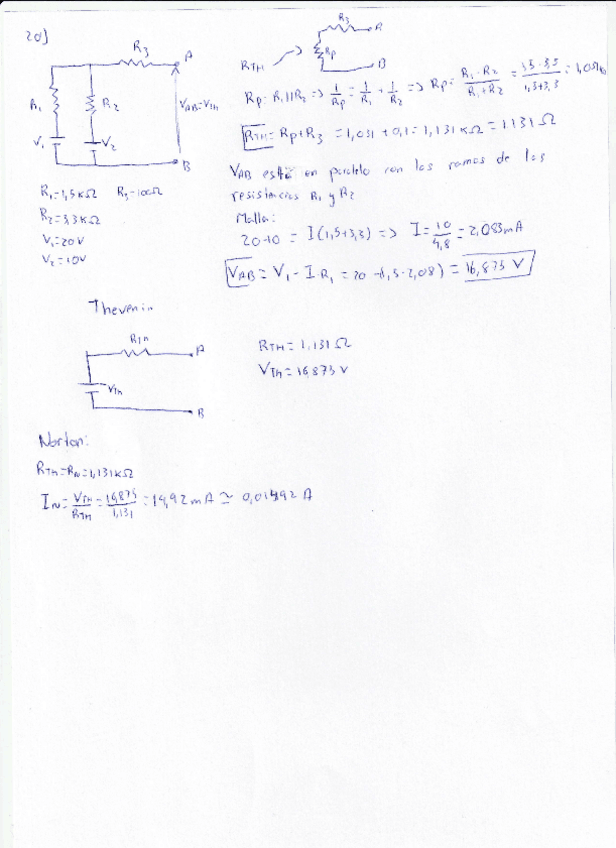 20)
R3
A
R1
R2
VAB=VTh
V1
V2
B
R1=1,5kΩ R3=100Ω
R2=3,3kΩ
V1=20V
V2=10V
R3
A
RTH
Rp
B
Rp=R1||R2 => 1/Rp = 1/R1 + 1/R2 => Rp = R1·R2/R1+R2 =
RTH = Rp+R3 = 1,031 + 0,1 = 1,131 kΩ = 1131 Ω
VAB está en paralelo con las ramas de las
resistencias R1 y R2
Malla:
20-10 = I(1,5+3,3) => I = 10/4,8 = 2,083mA
VAB = V1 - I·R1 = 20 - (1,5·2,08) = 16,875 V
Thevenin
RTh
A
VTh
B
RTH = 1,131 Ω
VTh = 16,875 V
Norton:
RTH=RN=1,131kΩ
IN = VTH/RTH = 16,875/1,131 = 14,92 mA ≃ 0,01492 A